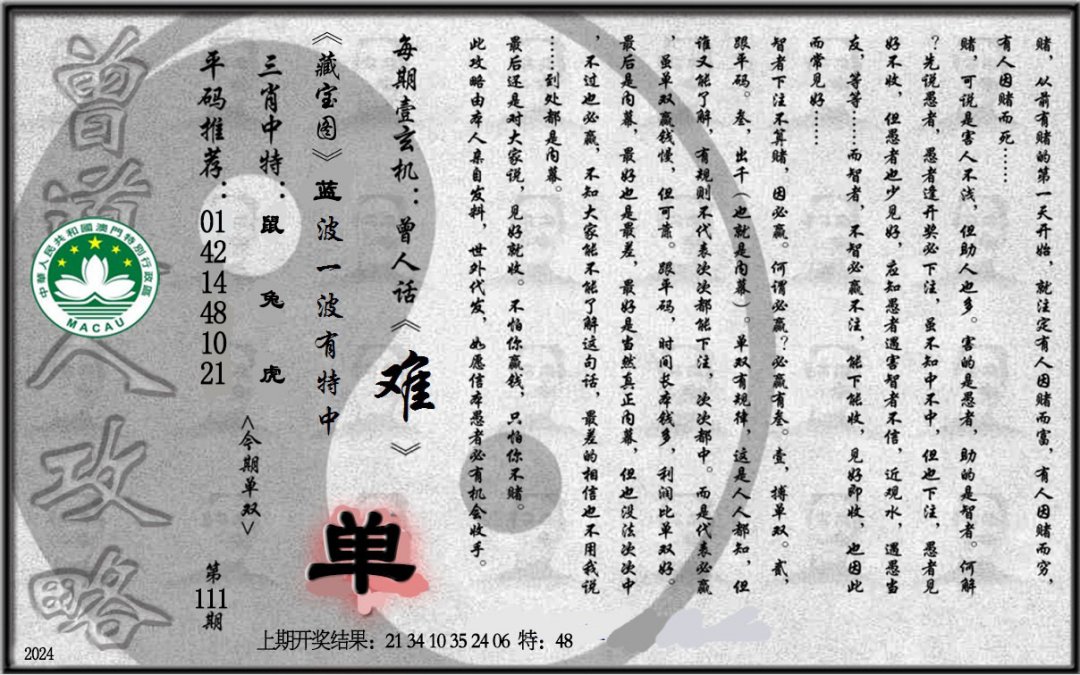 赌，从前有赌的第一天开始，就注定有人因赌而富，有人因赌而穷，
有人因赌而死……
赌，可说是害人不浅，但助人也多。害的是愚者，助的是智者。何解
？先说愚者，愚者逢开奖必下注，虽不知中不中，但也下注，愚者见
好不收，但愚者也少见好，应知愚者遇害智者不信，近观水，遇愚当
友，等等……而智者，不智必赢不注，能下能收，见好即收，也因此
而常见好……
智者下注不算赌，因必赢。何谓必赢？必赢有叁。壹，搏单双。贰，
跟平码。叁，出千（也就是内幕）。单双有规律，这是人人都知，但
谁又能了解，有规则不代表次次都能下注，次次都中。而是代表必赢
，虽单双赢钱慢，但可靠。跟平码，时间长本钱多，利润比单双好。
最后是内幕，最好也是最差，最好是当然真正内幕，但也没法次次中
，不过也必赢，不知大家能不能了解这句话，最差的相信也不用我说
……到处都是内幕。
最后还是对大家说，见好就收。不怕你赢钱，只怕你不赌。
此攻略由本人亲自发料，世外代发，如愿信本愚者必有机会收手。
每期壹玄机：曾人话《难》
《藏宝图》蓝波一波有特中
单
三肖中特：鼠 兔 虎
<今期单双>
平码推荐：01 42 14 48 10 21
第111期
曾道人攻略
中華人民共和國澳門特別行政區
MACAU
上期开奖结果：21 34 10 35 24 06 特：48
2024